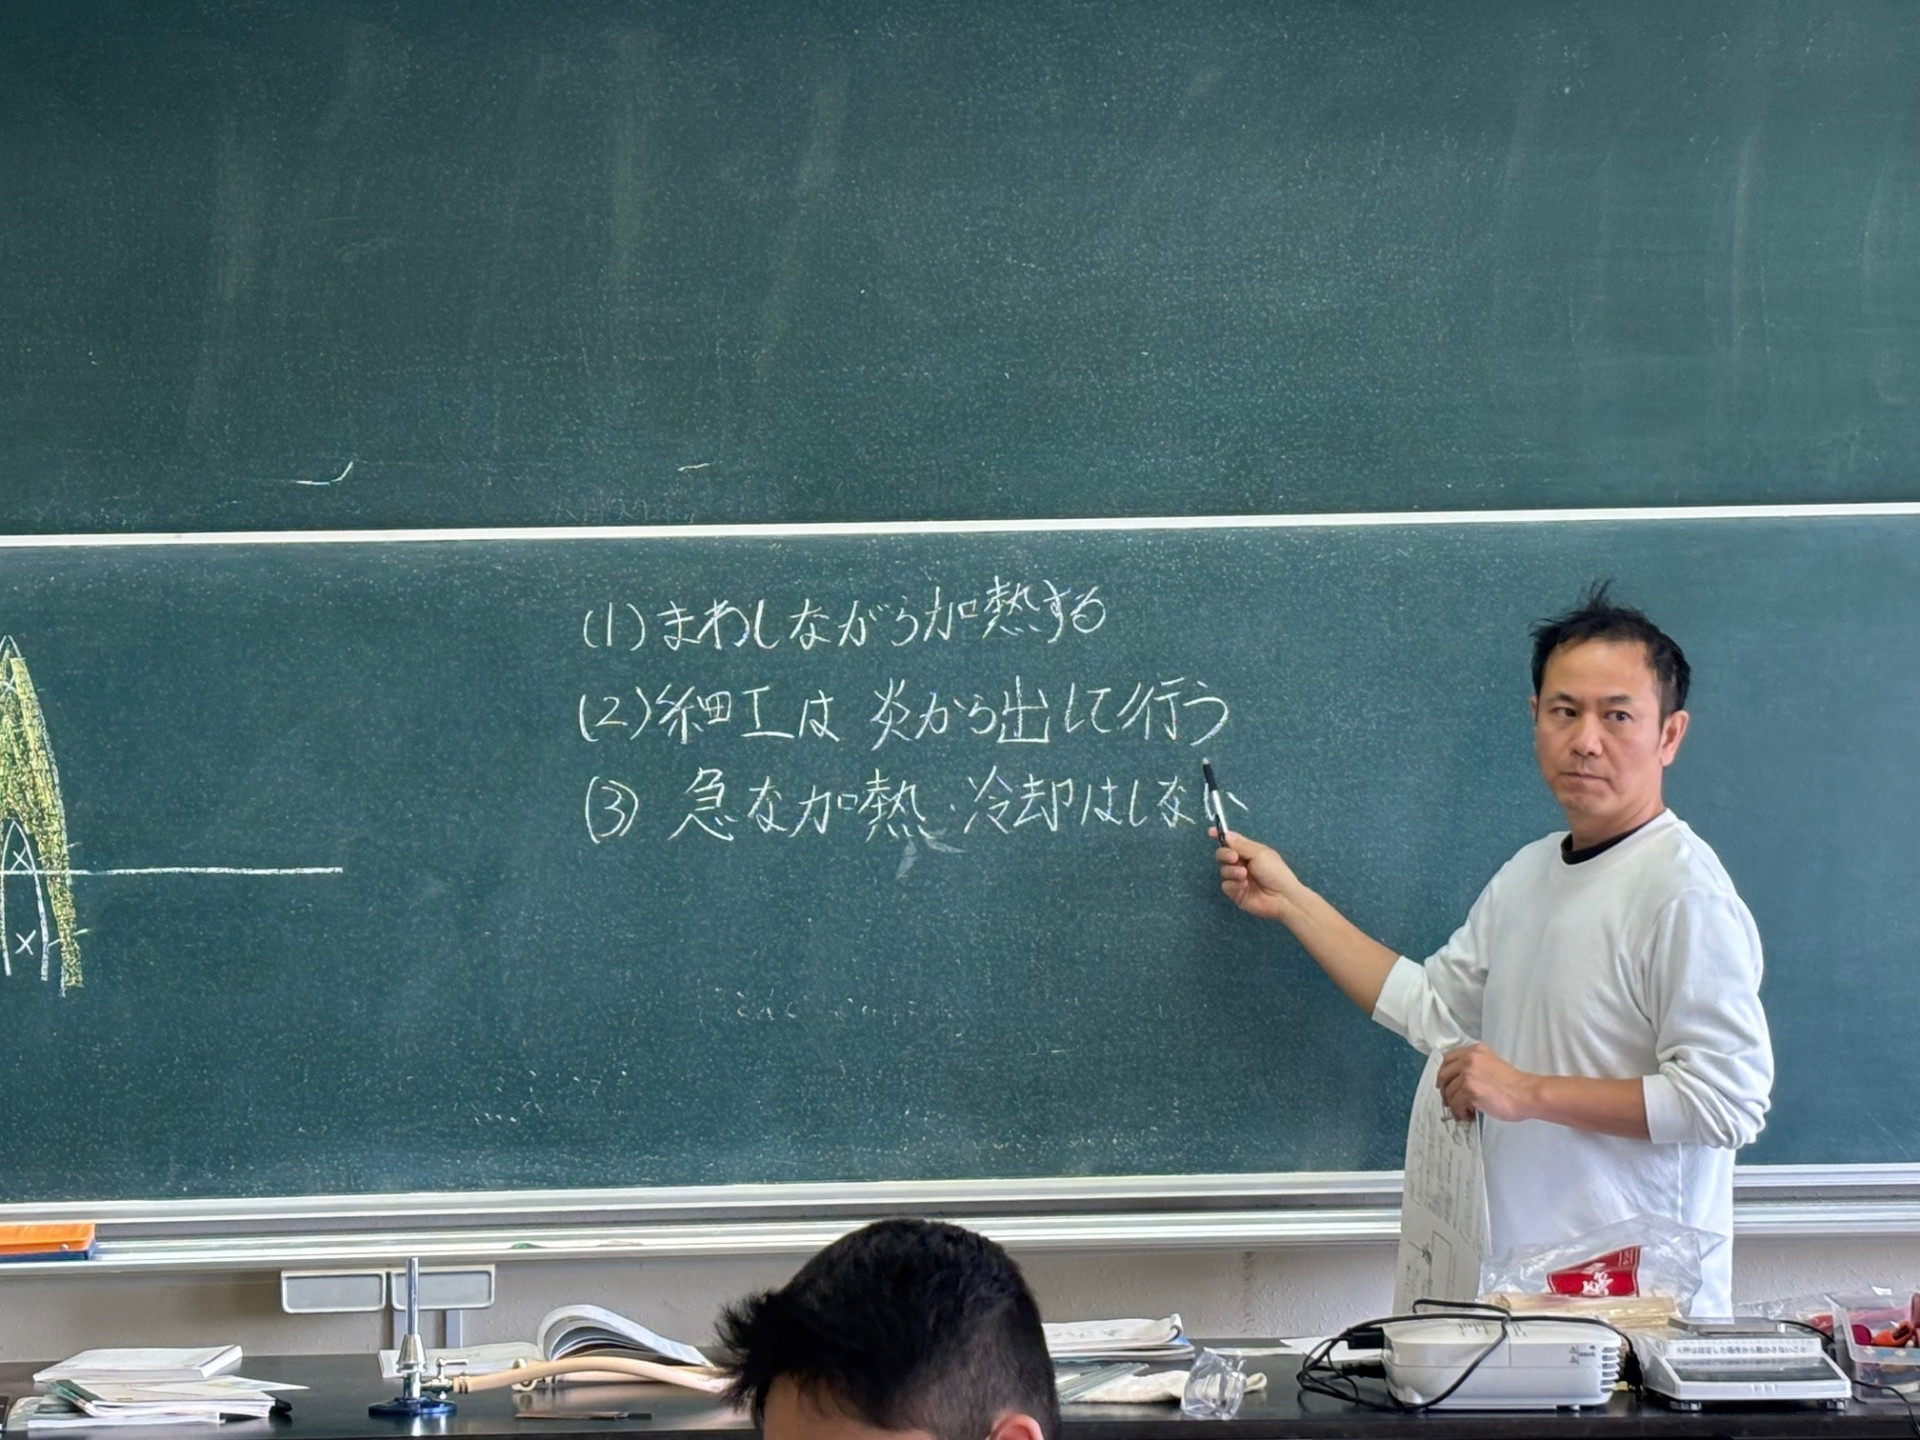 (1)まわしながら加熱する
(2)細工は 炎から出して行う
(3) 急な加熱・冷却はしない